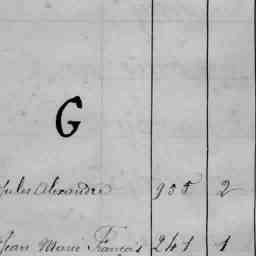 G
Jules Alexandre 955 2
Jean Marie François 241 1